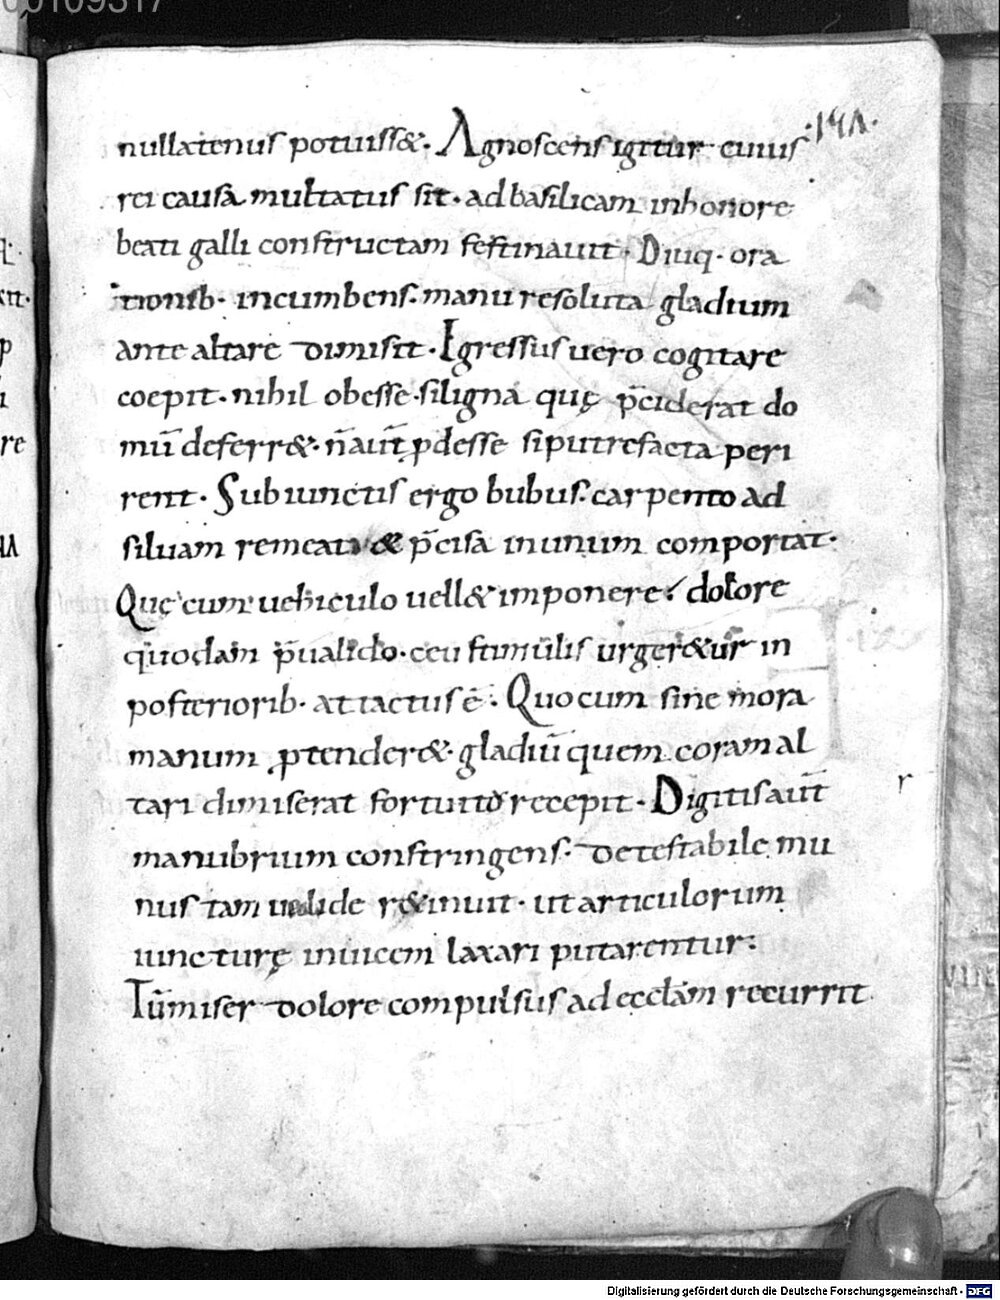 nullatenus potuiss&. Agnoscens igitur cuius
rei causa multatus sit. ad basilicam inhonore
beati galli constructam festinauit. Diuq. ora
tionib. incumbens. manu resoluta gladium
ante altare dimisit. Igressus uero cogitare
coepit. nihil obesse siligna quę p̄ciderat do
mū deferr&. n̄ aut̄ pdesse siputrefacta peri
rent. Subiunctis ergo bubus. carpento ad
siluam remeat & p̄cisa inunum comportat.
Quę cum uehiculo uell& imponere. dolore
quodam p̄ualido. ceu stimulis urger&ur in
posteriorib. attactus ē. Quocum sine mora
manum ptender&. gladiū quem coram al
tari dimiserat fortuito recepit. Digitis aut̄
manubrium constringens. detestabile mu
nus tam ualide r&inuit. ut articulorum
iuncturę inuicem laxari putarentur.
Tū miser dolore compulsus ad eccłam recurrit
r
Digitalisierung gefördert durch die Deutsche Forschungsgemeinschaft - DFG